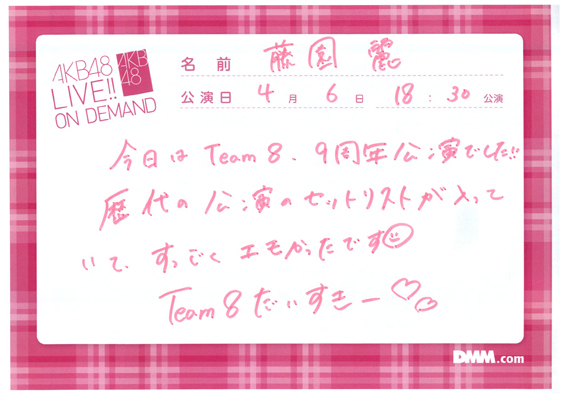 AKB48
LIVE!!
ON DEMAND
AKB
48
名前 藤園 麗
公演日 4月 6日 18:30公演
今日は Team 8、9周年公演でした!!
歴代の公演のセットリストが入って
いて、すっごくエモかったです
Team 8 だいすきー
DMM.com